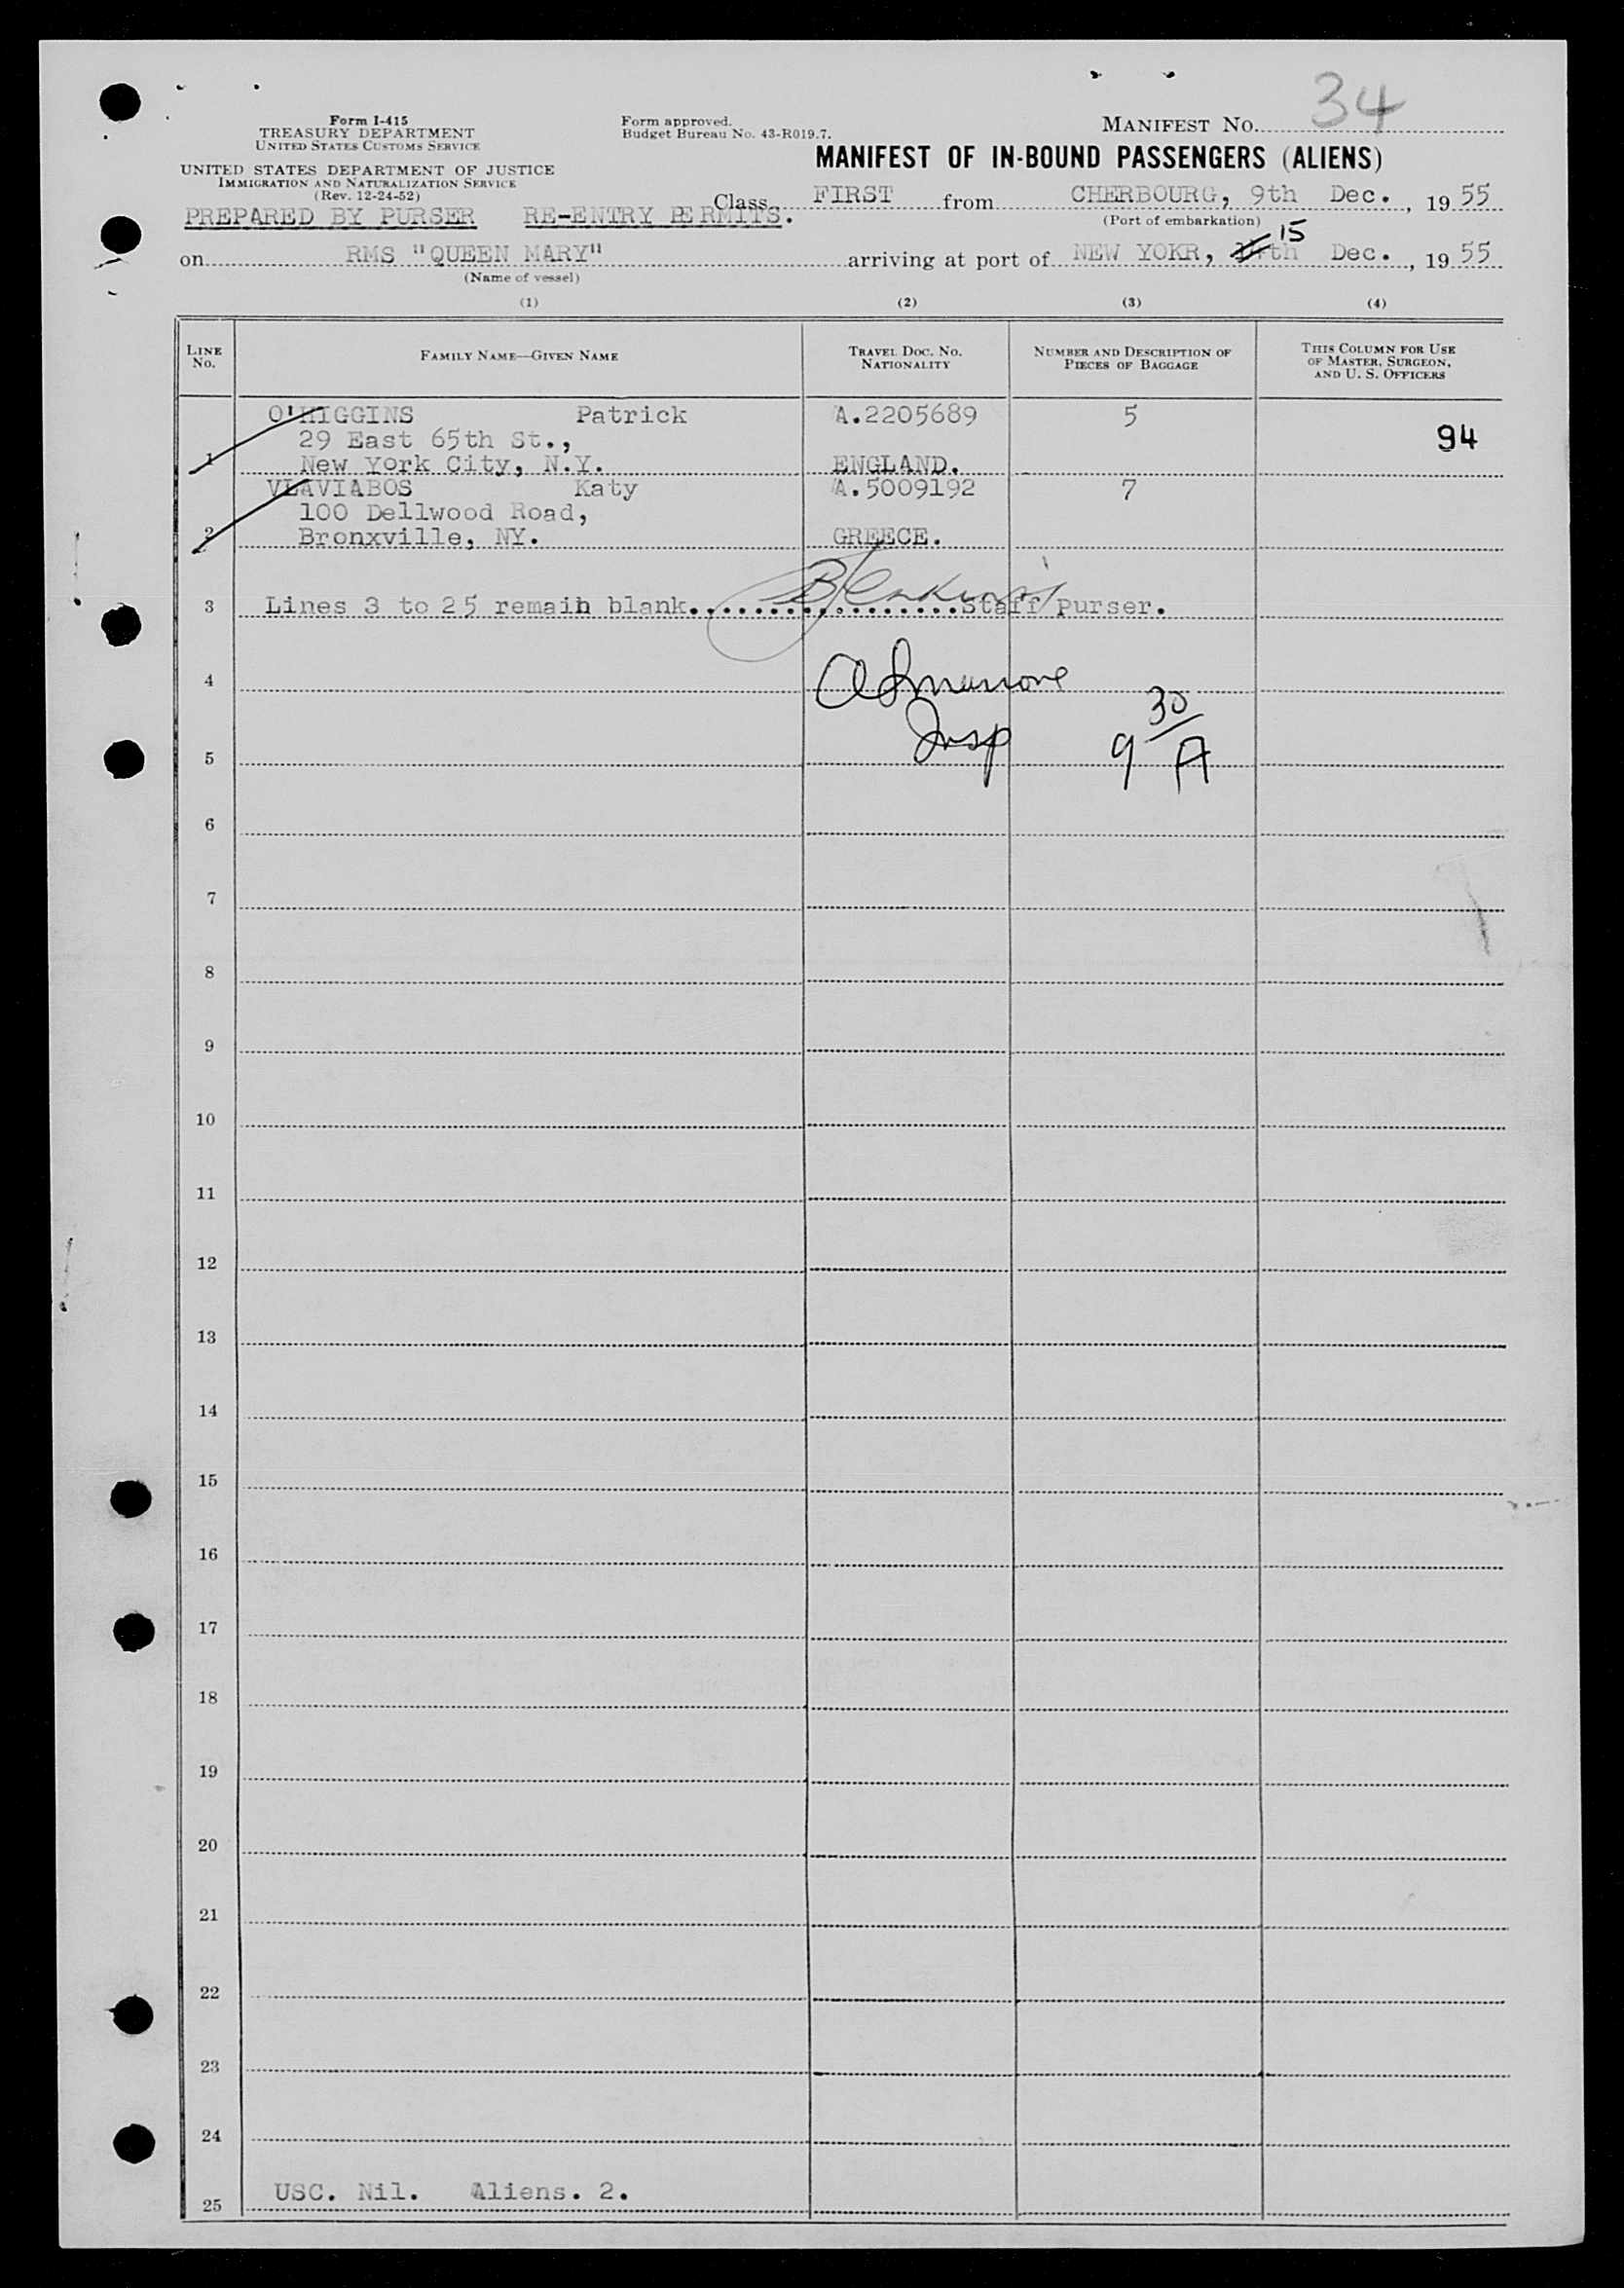 34
Form I-415
TREASURY DEPARTMENT
UNITED STATES CUSTOMS SERVICE
UNITED STATES DEPARTMENT OF JUSTICE
IMMIGRATION AND NATURALIZATION SERVICE
(Rev. 12-24-52)
Form approved.
Budget Bureau No. 43-R019.7.
MANIFEST NO.
MANIFEST OF IN-BOUND PASSENGERS (ALIENS)
PREPARED BY PURSER RE-ENTRY PERMITS.
Class FIRST from CHERBOURG, 9th Dec., 19 55
(Port of embarkation)
15
on RMS "QUEEN MARY" arriving at port of NEW YOKR, th Dec., 19 55
(Name of vessel)
(1) (2) (3) (4)
LINE NO. FAMILY NAME—GIVEN NAME TRAVEL DOC. NO. NATIONALITY NUMBER AND DESCRIPTION OF PIECES OF BAGGAGE THIS COLUMN FOR USE OF MASTER, SURGEON, AND U. S. OFFICERS
O'HIGGINS Patrick A.2205689 5
29 East 65th St., 94
1 New York City, N.Y. ENGLAND.
VLAVIABOS Katy A.5009192 7
100 Dellwood Road,
2 Bronxville, NY. GREECE.
3 Lines 3 to 25 remain blank. BJenkins Staff Purser.
4
Insp 9 30/A
5
6
7
8
9
10
11
12
13
14
15
16
17
18
19
20
21
22
23
24
25 USC. Nil. Aliens. 2.